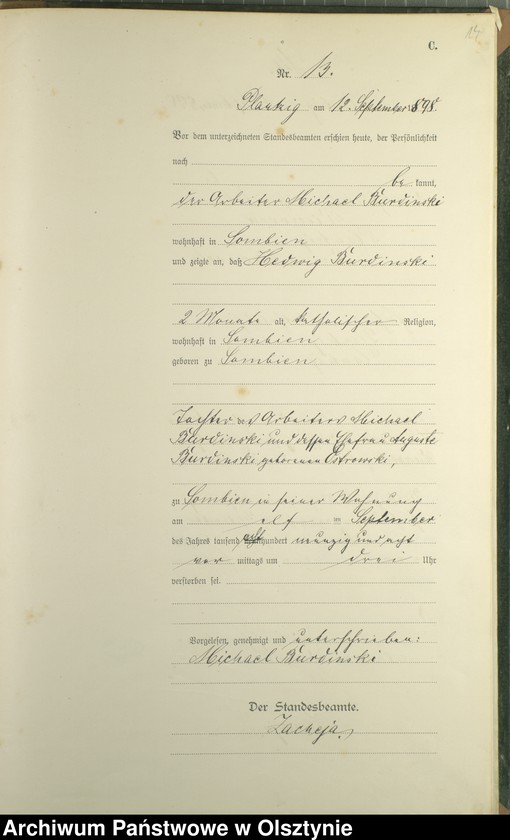 14
C.
Nr. 13.
Plautzig am 12. September 1898.
Vor dem unterzeichneten Standesbeamten erschien heute, der Persönlichkeit
nach
be kannt,
der Arbeiter Michael Burdinski
wohnhaft in Lombien
und zeigte an, daß Hedwig Burdinski
2 Monate alt, katholischer Religion,
wohnhaft in Lombien
geboren zu Lombien
Tochter des Arbeiters Michael
Burdinski und dessen Ehefrau Auguste
Burdinski geborenen Ostrowski,
zu Lombien in seiner Wohnung
am elf im September
des Jahres tausend achthundert neunzig und acht
vor mittags um drei Uhr
verstorben sei.
Vorgelesen, genehmigt und unterschrieben:
Michael Burdinski
Der Standesbeamte.
Zacheja.
Archiwum Państwowe w Olsztynie